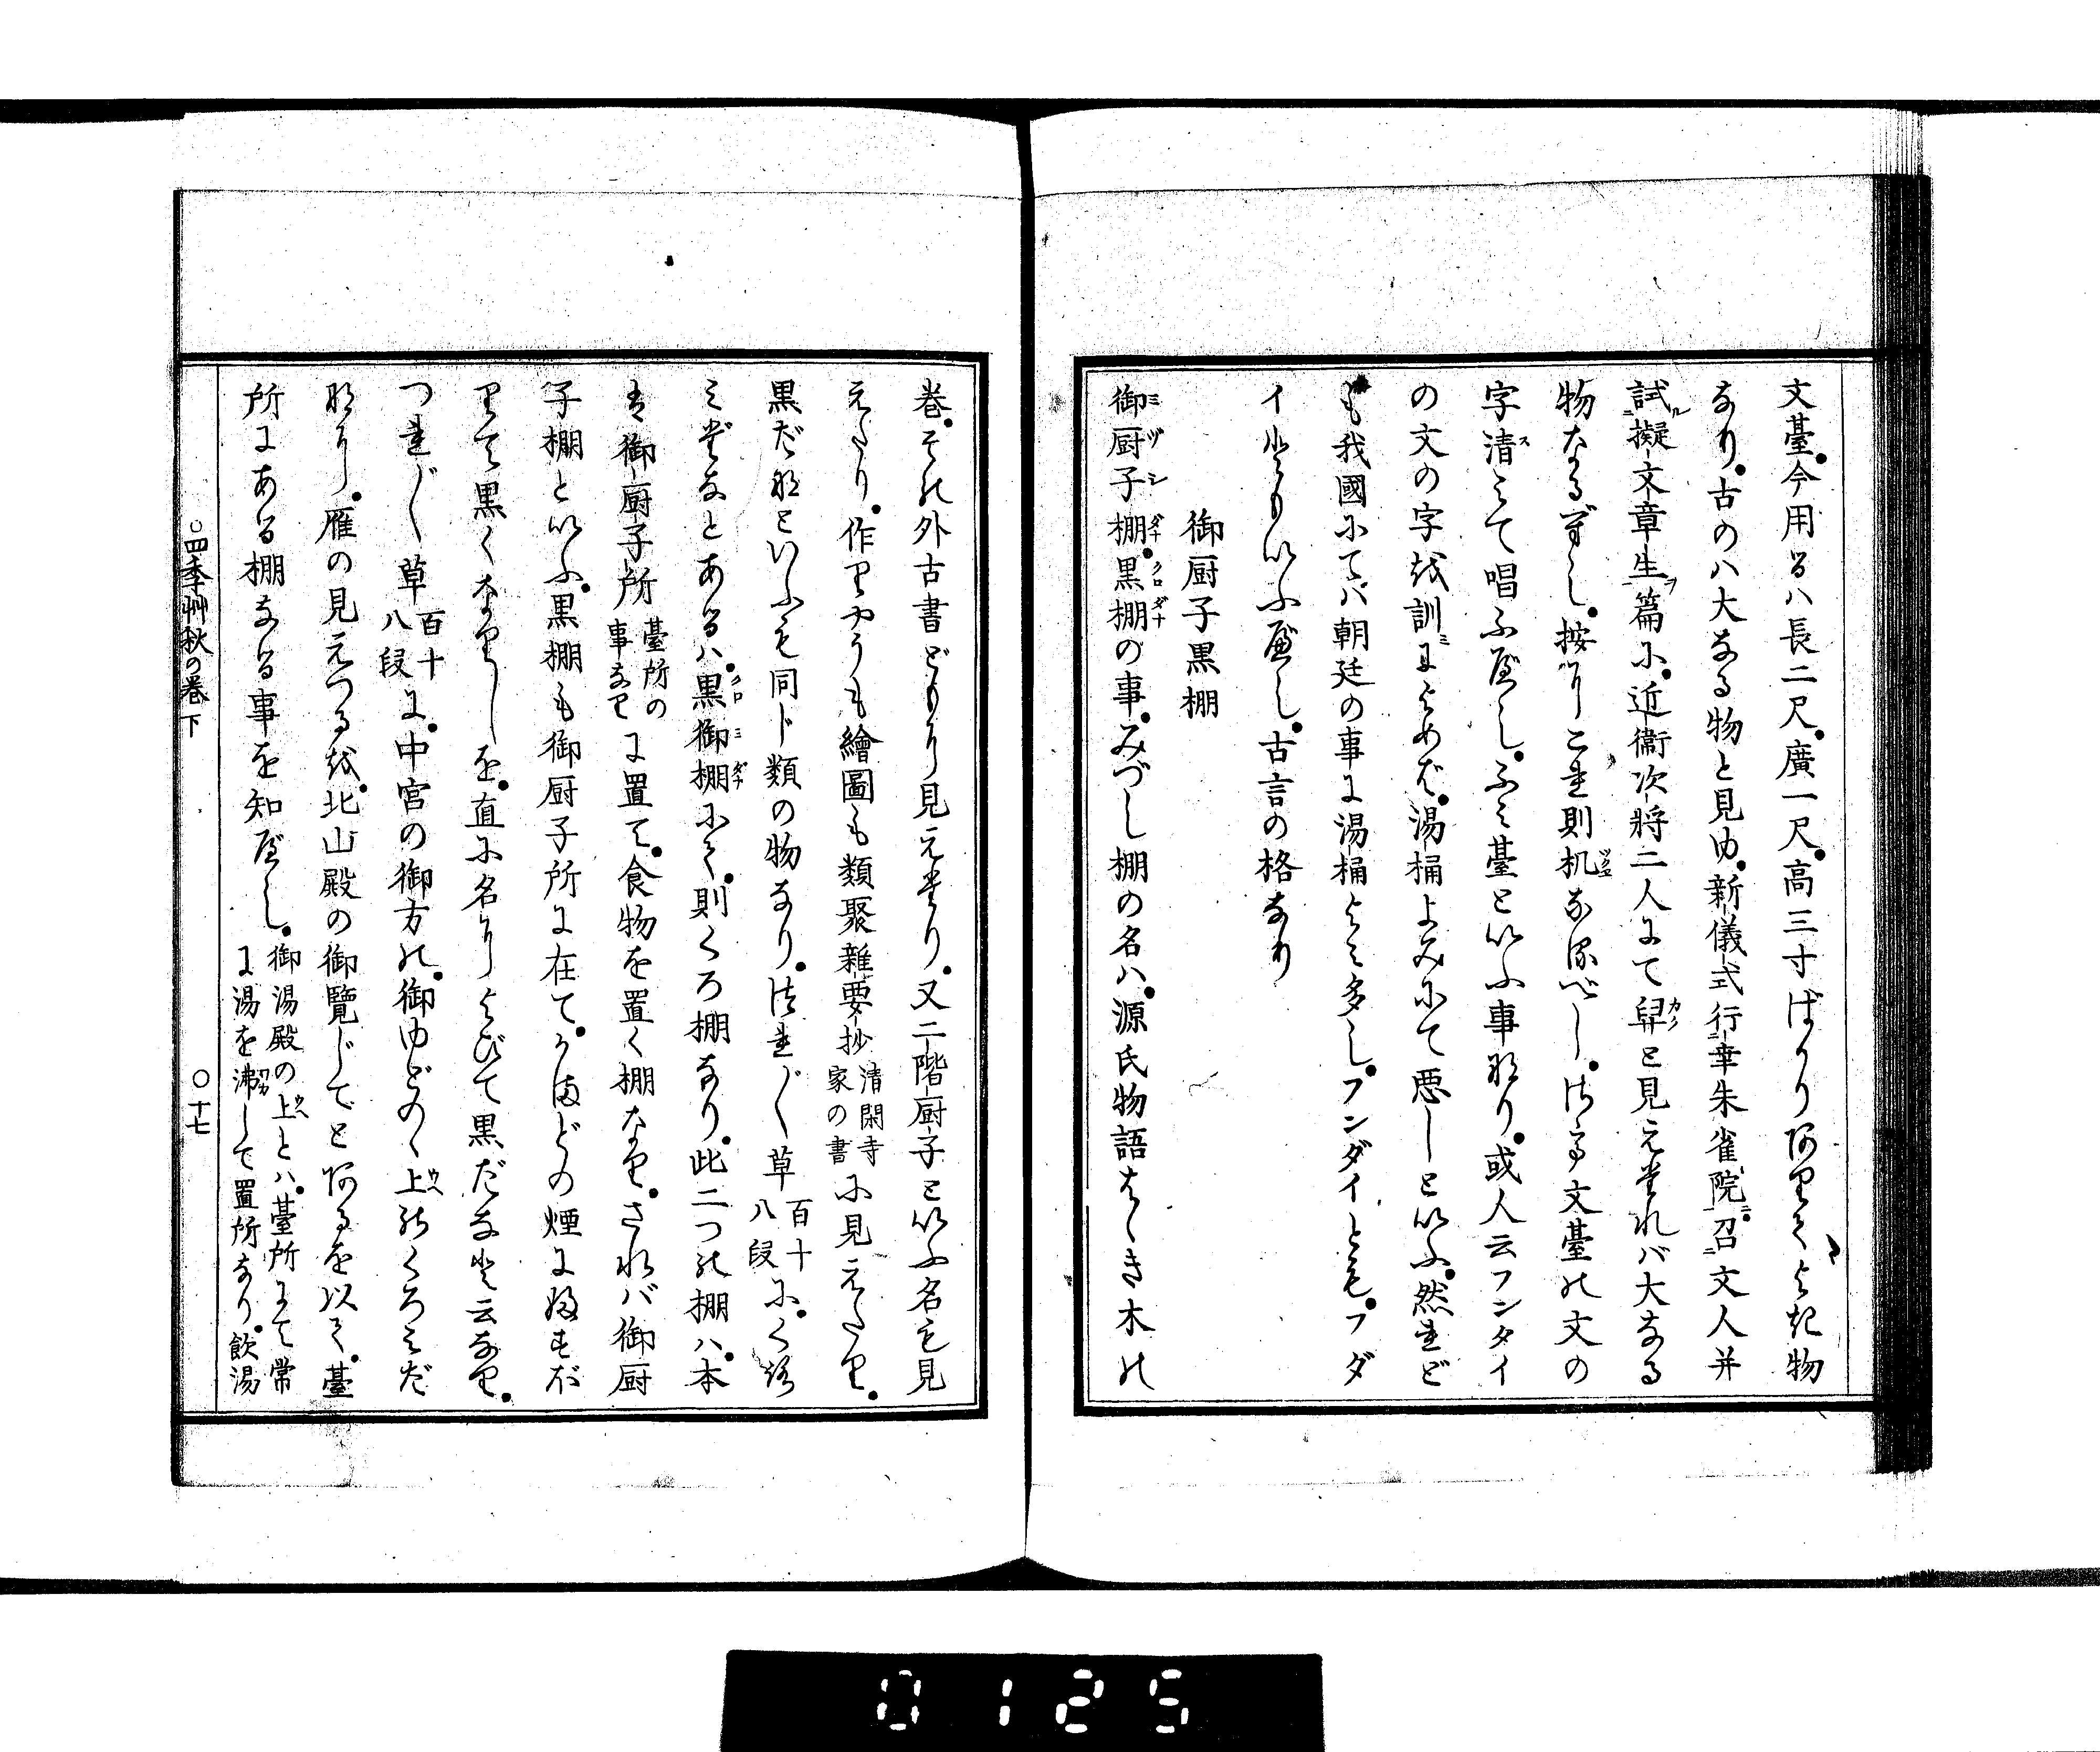 文臺今用るハ長二尺廣一尺高三寸ばかり何里てよき物
なり古のハ大なる物と見ゆ新儀式行幸朱雀院召文人并
試擬文章生篇に近衛次将二人にて舁と見えたれバ大なる
物なるべし按りこれ則机なるべし 文臺の文の
字清みて唱ふべし ふミ臺といふ事なり或人云フンタイ
の文の字を訓によめば湯桶よみにて悪しといふ然れど
も我國にてハ朝廷の事に湯桶よミ多しフンダイともフダ
イともいふべし古言の格なり
御厨子黒棚
御厨子棚黒棚の事みづし棚の名ハ源氏物語はゝき木の
巻その外古書どもに見えたり又二階厨子といふ名も見
えたり作りやうも繪圖も類聚雜要抄清閑寺家の書に見えたり
黒だなといふも同じ類の物なりつれづれ草百十八段にくろ
ミだなとあるハ黒御棚にて則くろ棚なり此二つの棚ハ本
は御厨子所臺所の事なりに置て食物を置く棚なりされバ御厨
子棚といふ黒棚も御厨子所に在てかまどの煙にふすぶ
りて黒くなりしを直に名によびて黒だなと云なり
つれづれ草百十八段に中宮の御方の御ゆどのゝ上のくろミだ
なに雁の見えつるを北山殿の御覽じてとあるを以て臺
所にある棚なる事を知べし御湯殿の上とハ臺所にて常に湯を沸して置所なり飲湯
四季艸秋の巻下
〇十七
0125